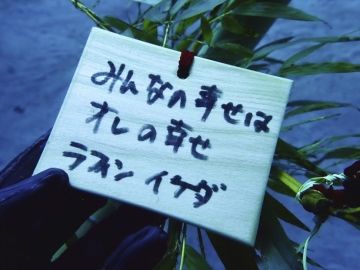 みんなの幸せは
オレの幸せ
ラスン イケダ